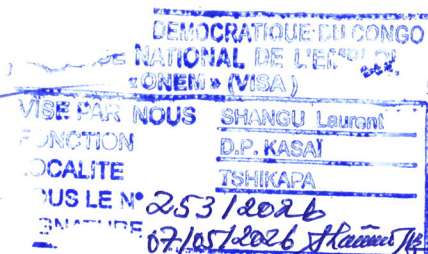 DEMOCRATIQUE DU CONGO
NATIONAL DE L'EMPLOI
«ONEM» (VISA)
VISE PAR NOUS SHANGU Laurent
FONCTION D.P. KASAÏ
LOCALITE TSHIKAPA
SOUS LE N° 253/2026
SIGNATURE 07/05/2026